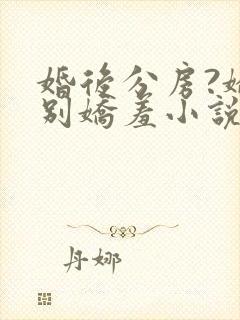 婚後分房?
別嬌羞小說
丹娜